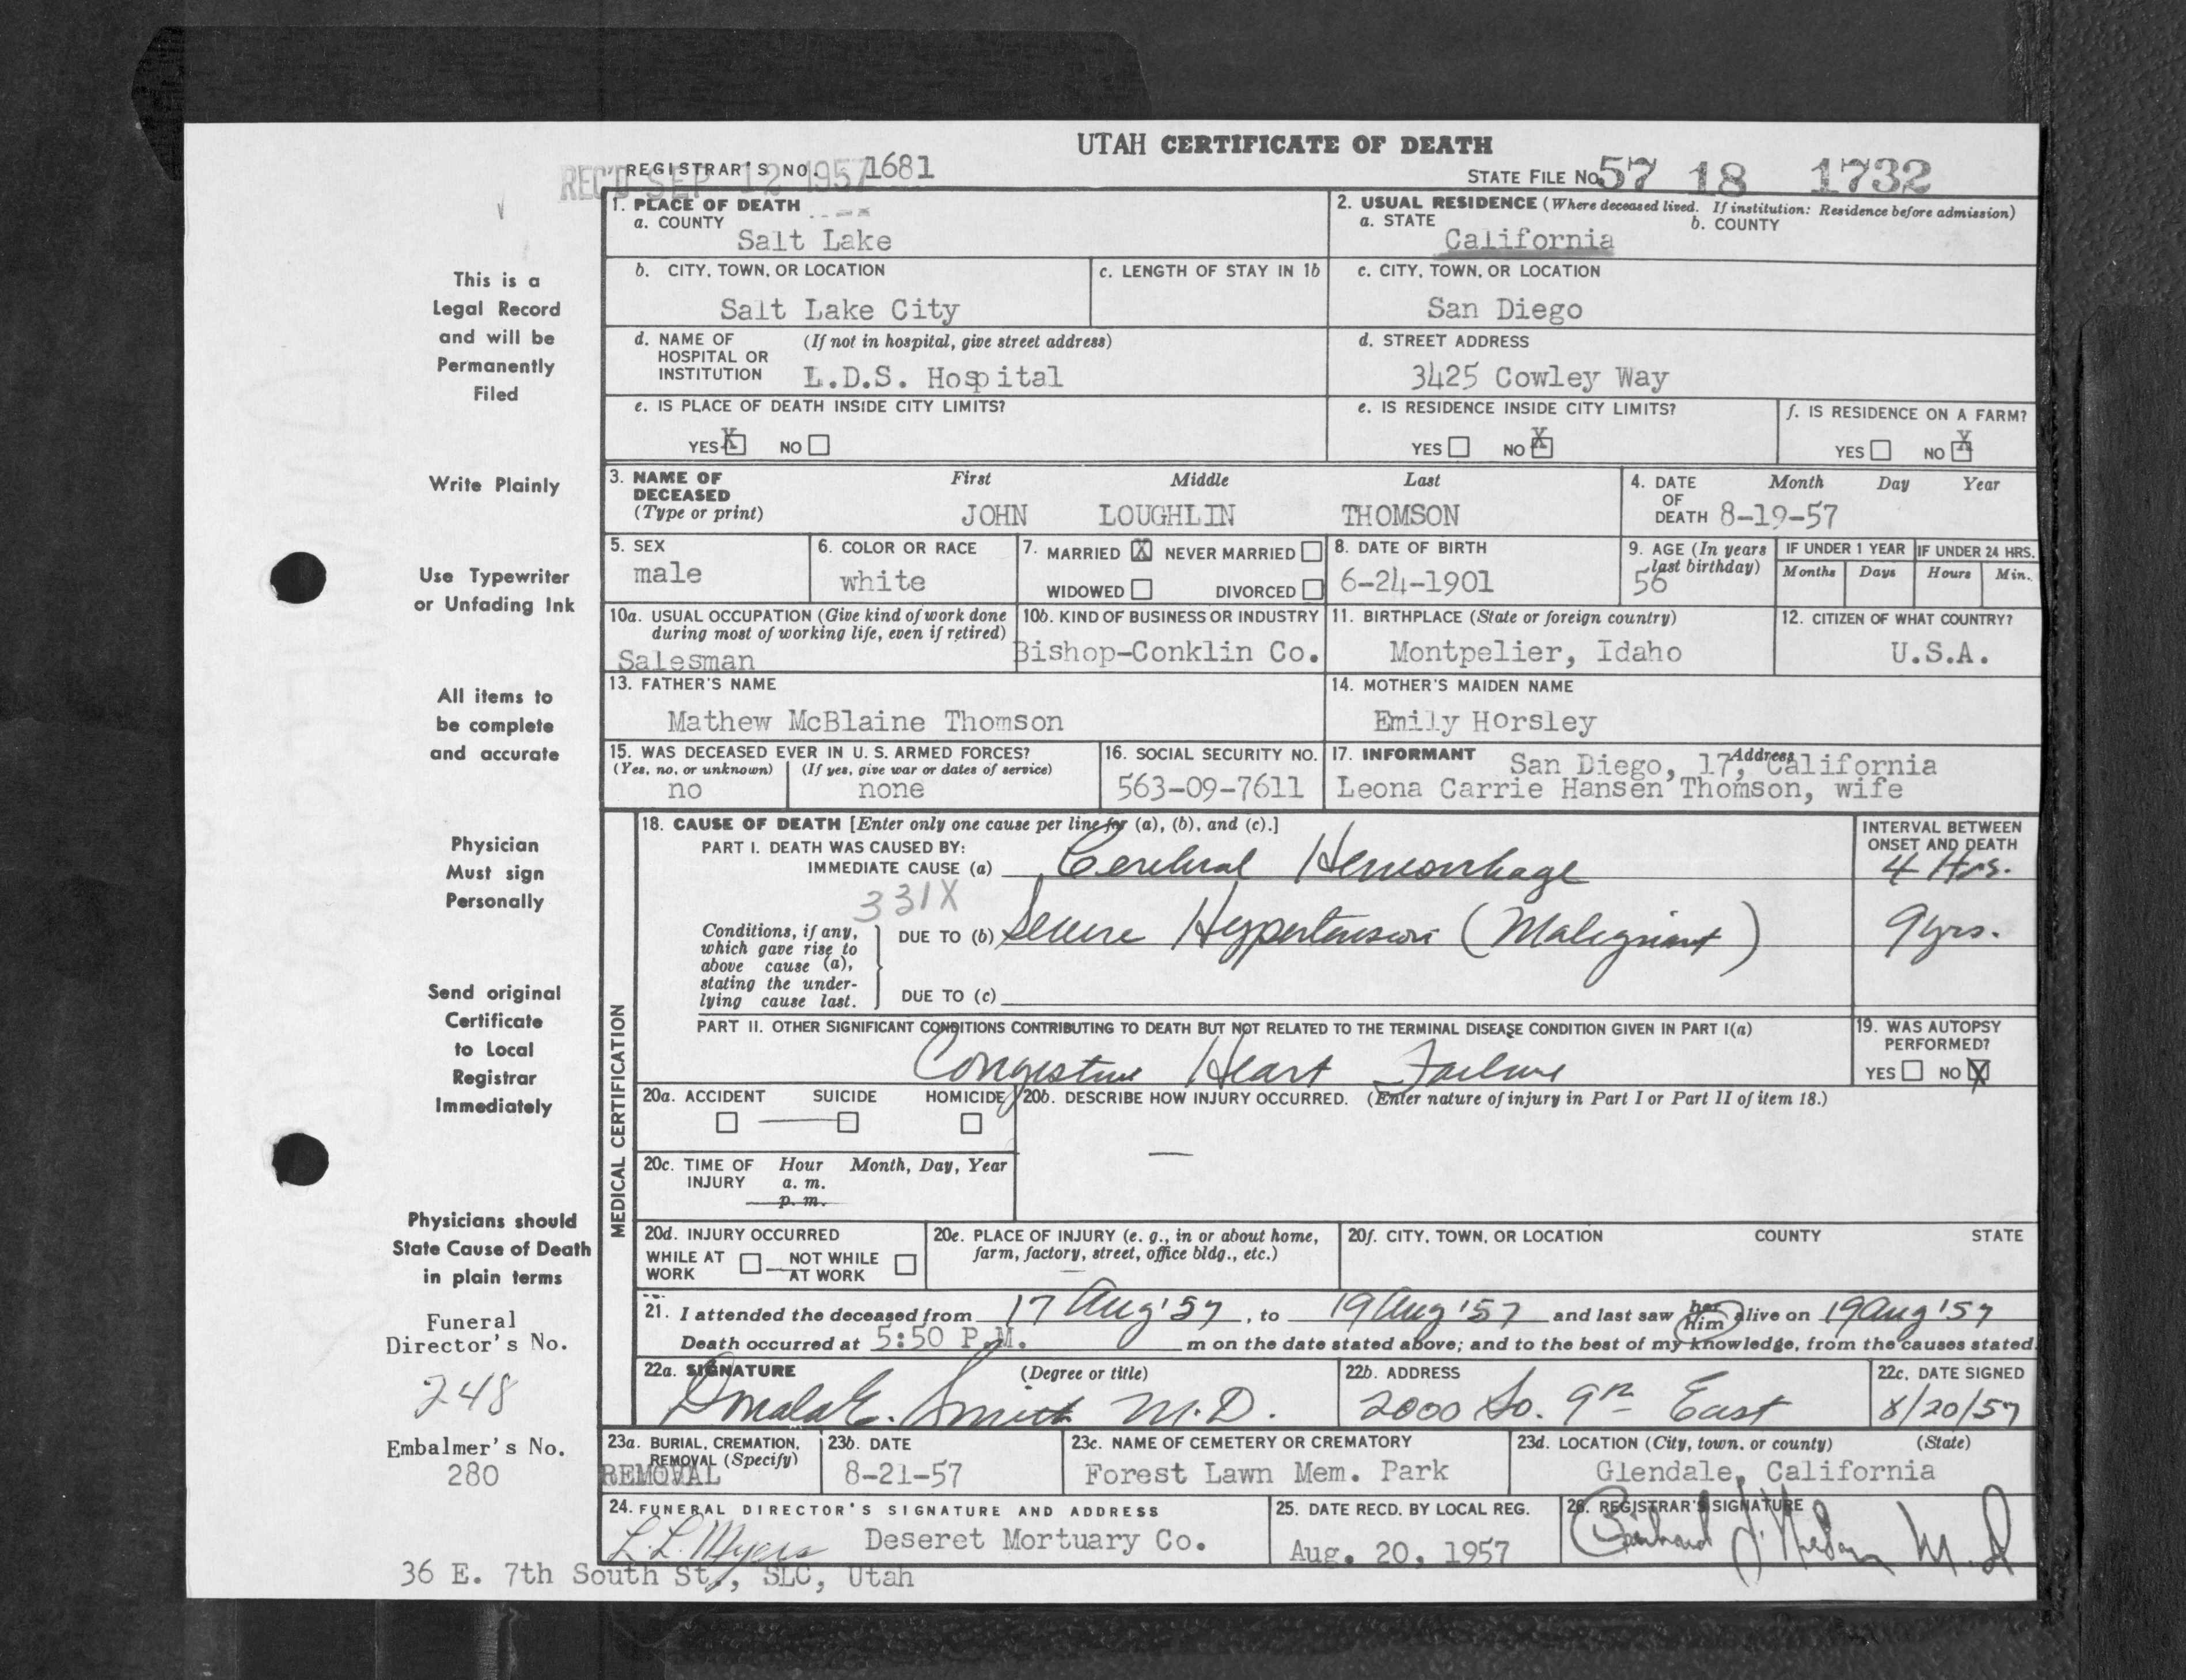 UTAH CERTIFICATE OF DEATH
REC'D SEP 12 1957
REGISTRAR'S NO. 1681
STATE FILE No. 57 18 1732
This is a
Legal Record
and will be
Permanently
Filed
Write Plainly
Use Typewriter
or Unfading Ink
All items to
be complete
and accurate
Physician
Must sign
Personally
Send original
Certificate
to Local
Registrar
Immediately
Physicians should
State Cause of Death
in plain terms
Funeral
Director's No.
248
Embalmer's No.
280
1. PLACE OF DEATH
a. COUNTY
Salt Lake
2. USUAL RESIDENCE (Where deceased lived. If institution: Residence before admission)
a. STATE b. COUNTY
California
b. CITY, TOWN, OR LOCATION
Salt Lake City
c. LENGTH OF STAY IN 1b
c. CITY, TOWN, OR LOCATION
San Diego
d. NAME OF (If not in hospital, give street address)
HOSPITAL OR
INSTITUTION L.D.S. Hospital
d. STREET ADDRESS
3425 Cowley Way
e. IS PLACE OF DEATH INSIDE CITY LIMITS?
YES X NO
e. IS RESIDENCE INSIDE CITY LIMITS?
YES NO X
f. IS RESIDENCE ON A FARM?
YES NO X
3. NAME OF DECEASED (Type or print)
First Middle Last
JOHN LOUGHLIN THOMSON
4. DATE OF DEATH
Month Day Year
8-19-57
5. SEX
male
6. COLOR OR RACE
white
7. MARRIED X NEVER MARRIED
WIDOWED DIVORCED
8. DATE OF BIRTH
6-24-1901
9. AGE (In years last birthday)
56
IF UNDER 1 YEAR
Months Days
IF UNDER 24 HRS.
Hours Min.
10a. USUAL OCCUPATION (Give kind of work done
during most of working life, even if retired)
Salesman
10b. KIND OF BUSINESS OR INDUSTRY
Bishop-Conklin Co.
11. BIRTHPLACE (State or foreign country)
Montpelier, Idaho
12. CITIZEN OF WHAT COUNTRY?
U.S.A.
13. FATHER'S NAME
Mathew McBlaine Thomson
14. MOTHER'S MAIDEN NAME
Emily Horsley
15. WAS DECEASED EVER IN U. S. ARMED FORCES?
(Yes, no, or unknown) (If yes, give war or dates of service)
no none
16. SOCIAL SECURITY NO.
563-09-7611
17. INFORMANT Address
San Diego, 17, California
Leona Carrie Hansen Thomson, wife
MEDICAL CERTIFICATION
18. CAUSE OF DEATH [Enter only one cause per line for (a), (b), and (c).]
PART I. DEATH WAS CAUSED BY:
IMMEDIATE CAUSE (a) Cerebral Hemorrhage
331X
INTERVAL BETWEEN
ONSET AND DEATH
4 Hrs.
Conditions, if any,
which gave rise to
above cause (a),
stating the under-
lying cause last.
DUE TO (b) Severe Hypertension (Malignant)
9 yrs.
DUE TO (c)
PART II. OTHER SIGNIFICANT CONDITIONS CONTRIBUTING TO DEATH BUT NOT RELATED TO THE TERMINAL DISEASE CONDITION GIVEN IN PART I(a)
Congestive Heart Failure
19. WAS AUTOPSY
PERFORMED?
YES NO X
20a. ACCIDENT SUICIDE HOMICIDE
20b. DESCRIBE HOW INJURY OCCURRED. (Enter nature of injury in Part I or Part II of item 18.)
20c. TIME OF INJURY
Hour Month, Day, Year
a. m.
p. m.
20d. INJURY OCCURRED
WHILE AT WORK NOT WHILE AT WORK
20e. PLACE OF INJURY (e. g., in or about home,
farm, factory, street, office bldg., etc.)
20f. CITY, TOWN, OR LOCATION COUNTY STATE
21. I attended the deceased from 17 Aug '57, to 19 Aug '57 and last saw her him alive on 19 Aug '57
Death occurred at 5:50 P.M. m on the date stated above; and to the best of my knowledge, from the causes stated.
22a. SIGNATURE (Degree or title)
Donald E. Smith M.D.
22b. ADDRESS
2000 So. 9th East
22c. DATE SIGNED
8/20/57
23a. BURIAL, CREMATION,
REMOVAL (Specify)
REMOVAL
23b. DATE
8-21-57
23c. NAME OF CEMETERY OR CREMATORY
Forest Lawn Mem. Park
23d. LOCATION (City, town, or county) (State)
Glendale, California
24. FUNERAL DIRECTOR'S SIGNATURE AND ADDRESS
L.L. Myers Deseret Mortuary Co.
36 E. 7th South St., SLC, Utah
25. DATE RECD. BY LOCAL REG.
Aug. 20, 1957
26. REGISTRAR'S SIGNATURE
M.D.